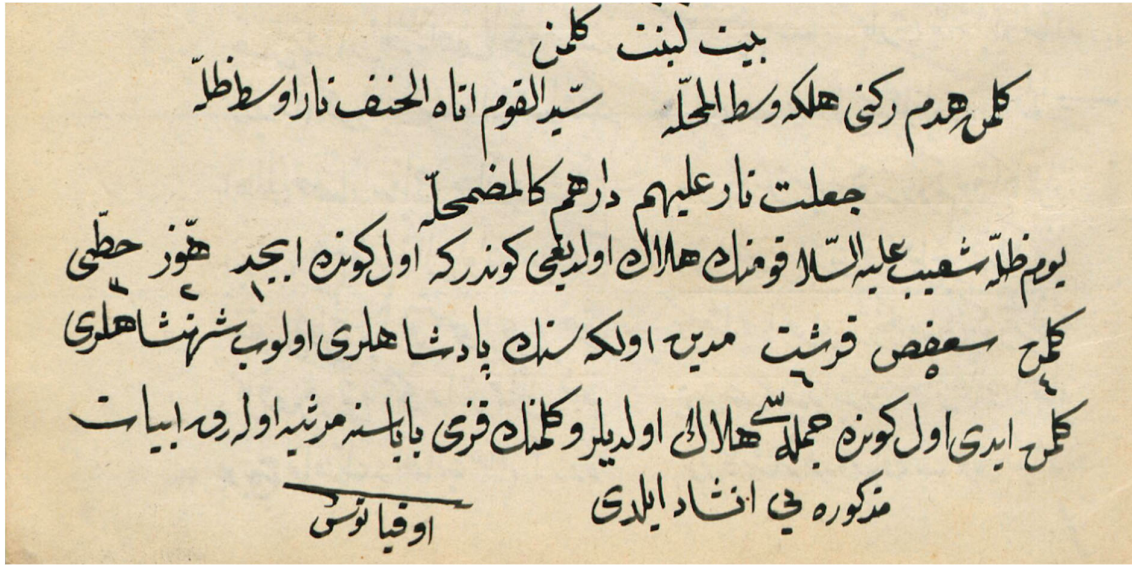 بيت لبنت كلمن
كلمن هدم ركنى هلكه وسط المحلّه سيّد القوم اتاه الحتف نار اوسط ظلّه
جعلت نار عليهم دارهم كالمضمحلّه
يوم ظلّه شعيب عليه السّلا قومنك هلاك اولديغى كوندر كه اول كونده ابجد ١ هوّز ٢ حطّى ٣
كلمن ٤ سعفص ٥ قرشت ٦ مدين اولكه سنك پادشاهلرى اولوب شهنشاهلرى
كلمن ايدى اول كونده جمله سى هلاك اولديلر و كلمنك قزى باباسنه مرثيه اوله رق ابيات
مذكوره يى انشاد ايلدى
اوقيانوس